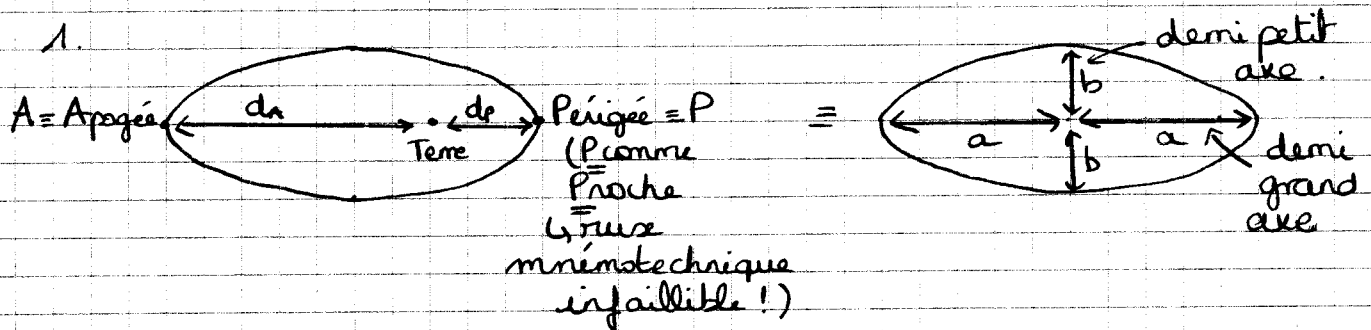 1.
A ≡ Apogée
dA
dP
Terre
Périgée ≡ P
(P comme
Proche
↳ ruse
mnémotechnique
infaillible !)
≡
demi petit
axe.
b
a
a
b
demi
grand
axe